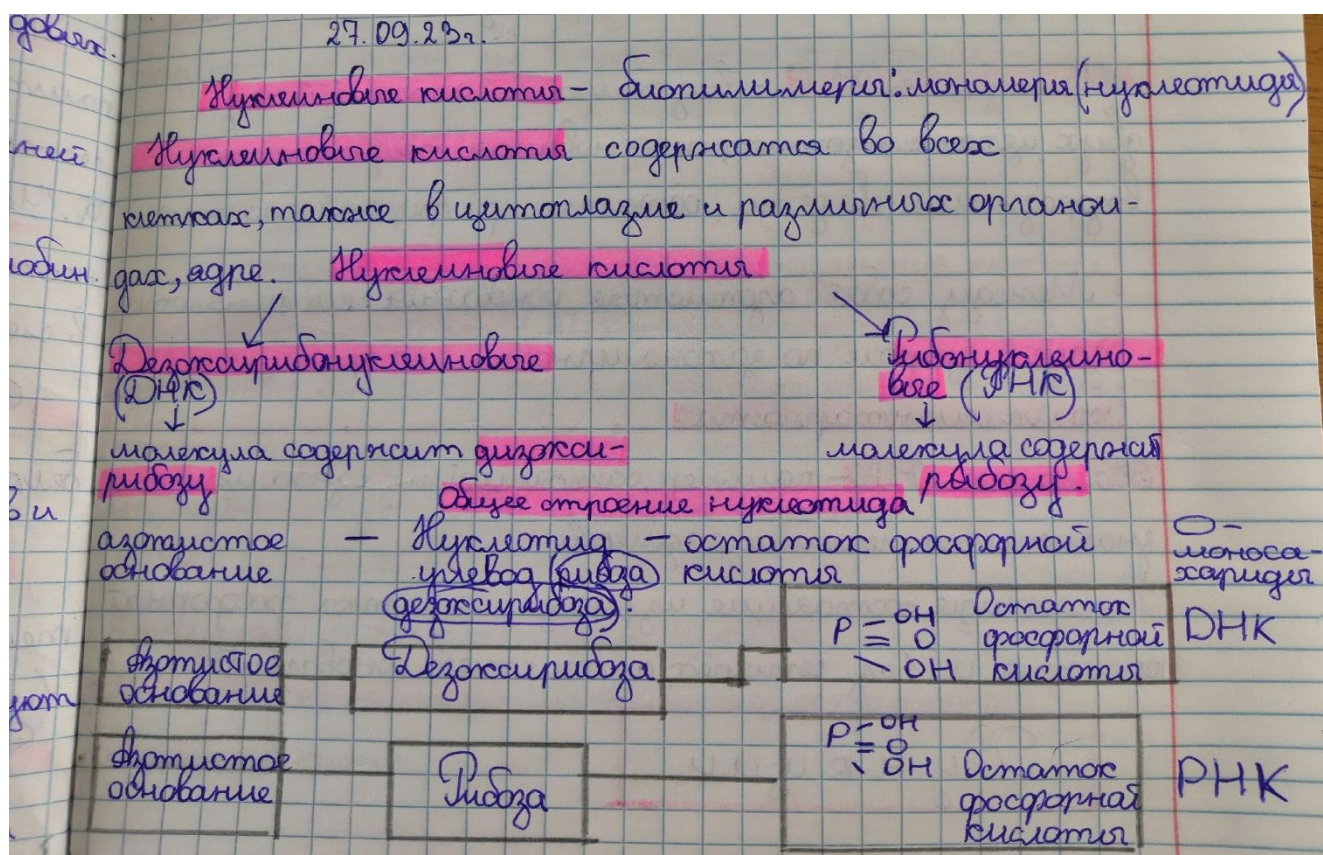 довях.
27.09.23г.
Нуклеиновые кислоты – биополимеры: мономеры (нуклеотиды)
ней
Нуклеиновые кислоты содержатся во всех
клетках, также в цитоплазме и различных органои-
обин.
дах, ядре. Нуклеиновые кислоты
Дезоксирибонуклеиновые
(ДНК)
Рибонуклеино-
вые (РНК)
молекула содержит дизокси-
рибозу
молекула содержай
рибозу.
Общее строение нуклеотида
азотистое
основание
— Нуклеотид —
углевод (рибоза)
(дезоксирибоза).
остаток фосфорной
кислоты
О–
моноса-
хариды
Азотистое
основание
Дезоксирибоза
P – OH
= O
– OH
Остаток
фосфорной
кислоты
ДНК
ют
Азотистое
основание
Рибоза
P – OH
= O
OH
Остаток
фосфорной
кислоты
РНК